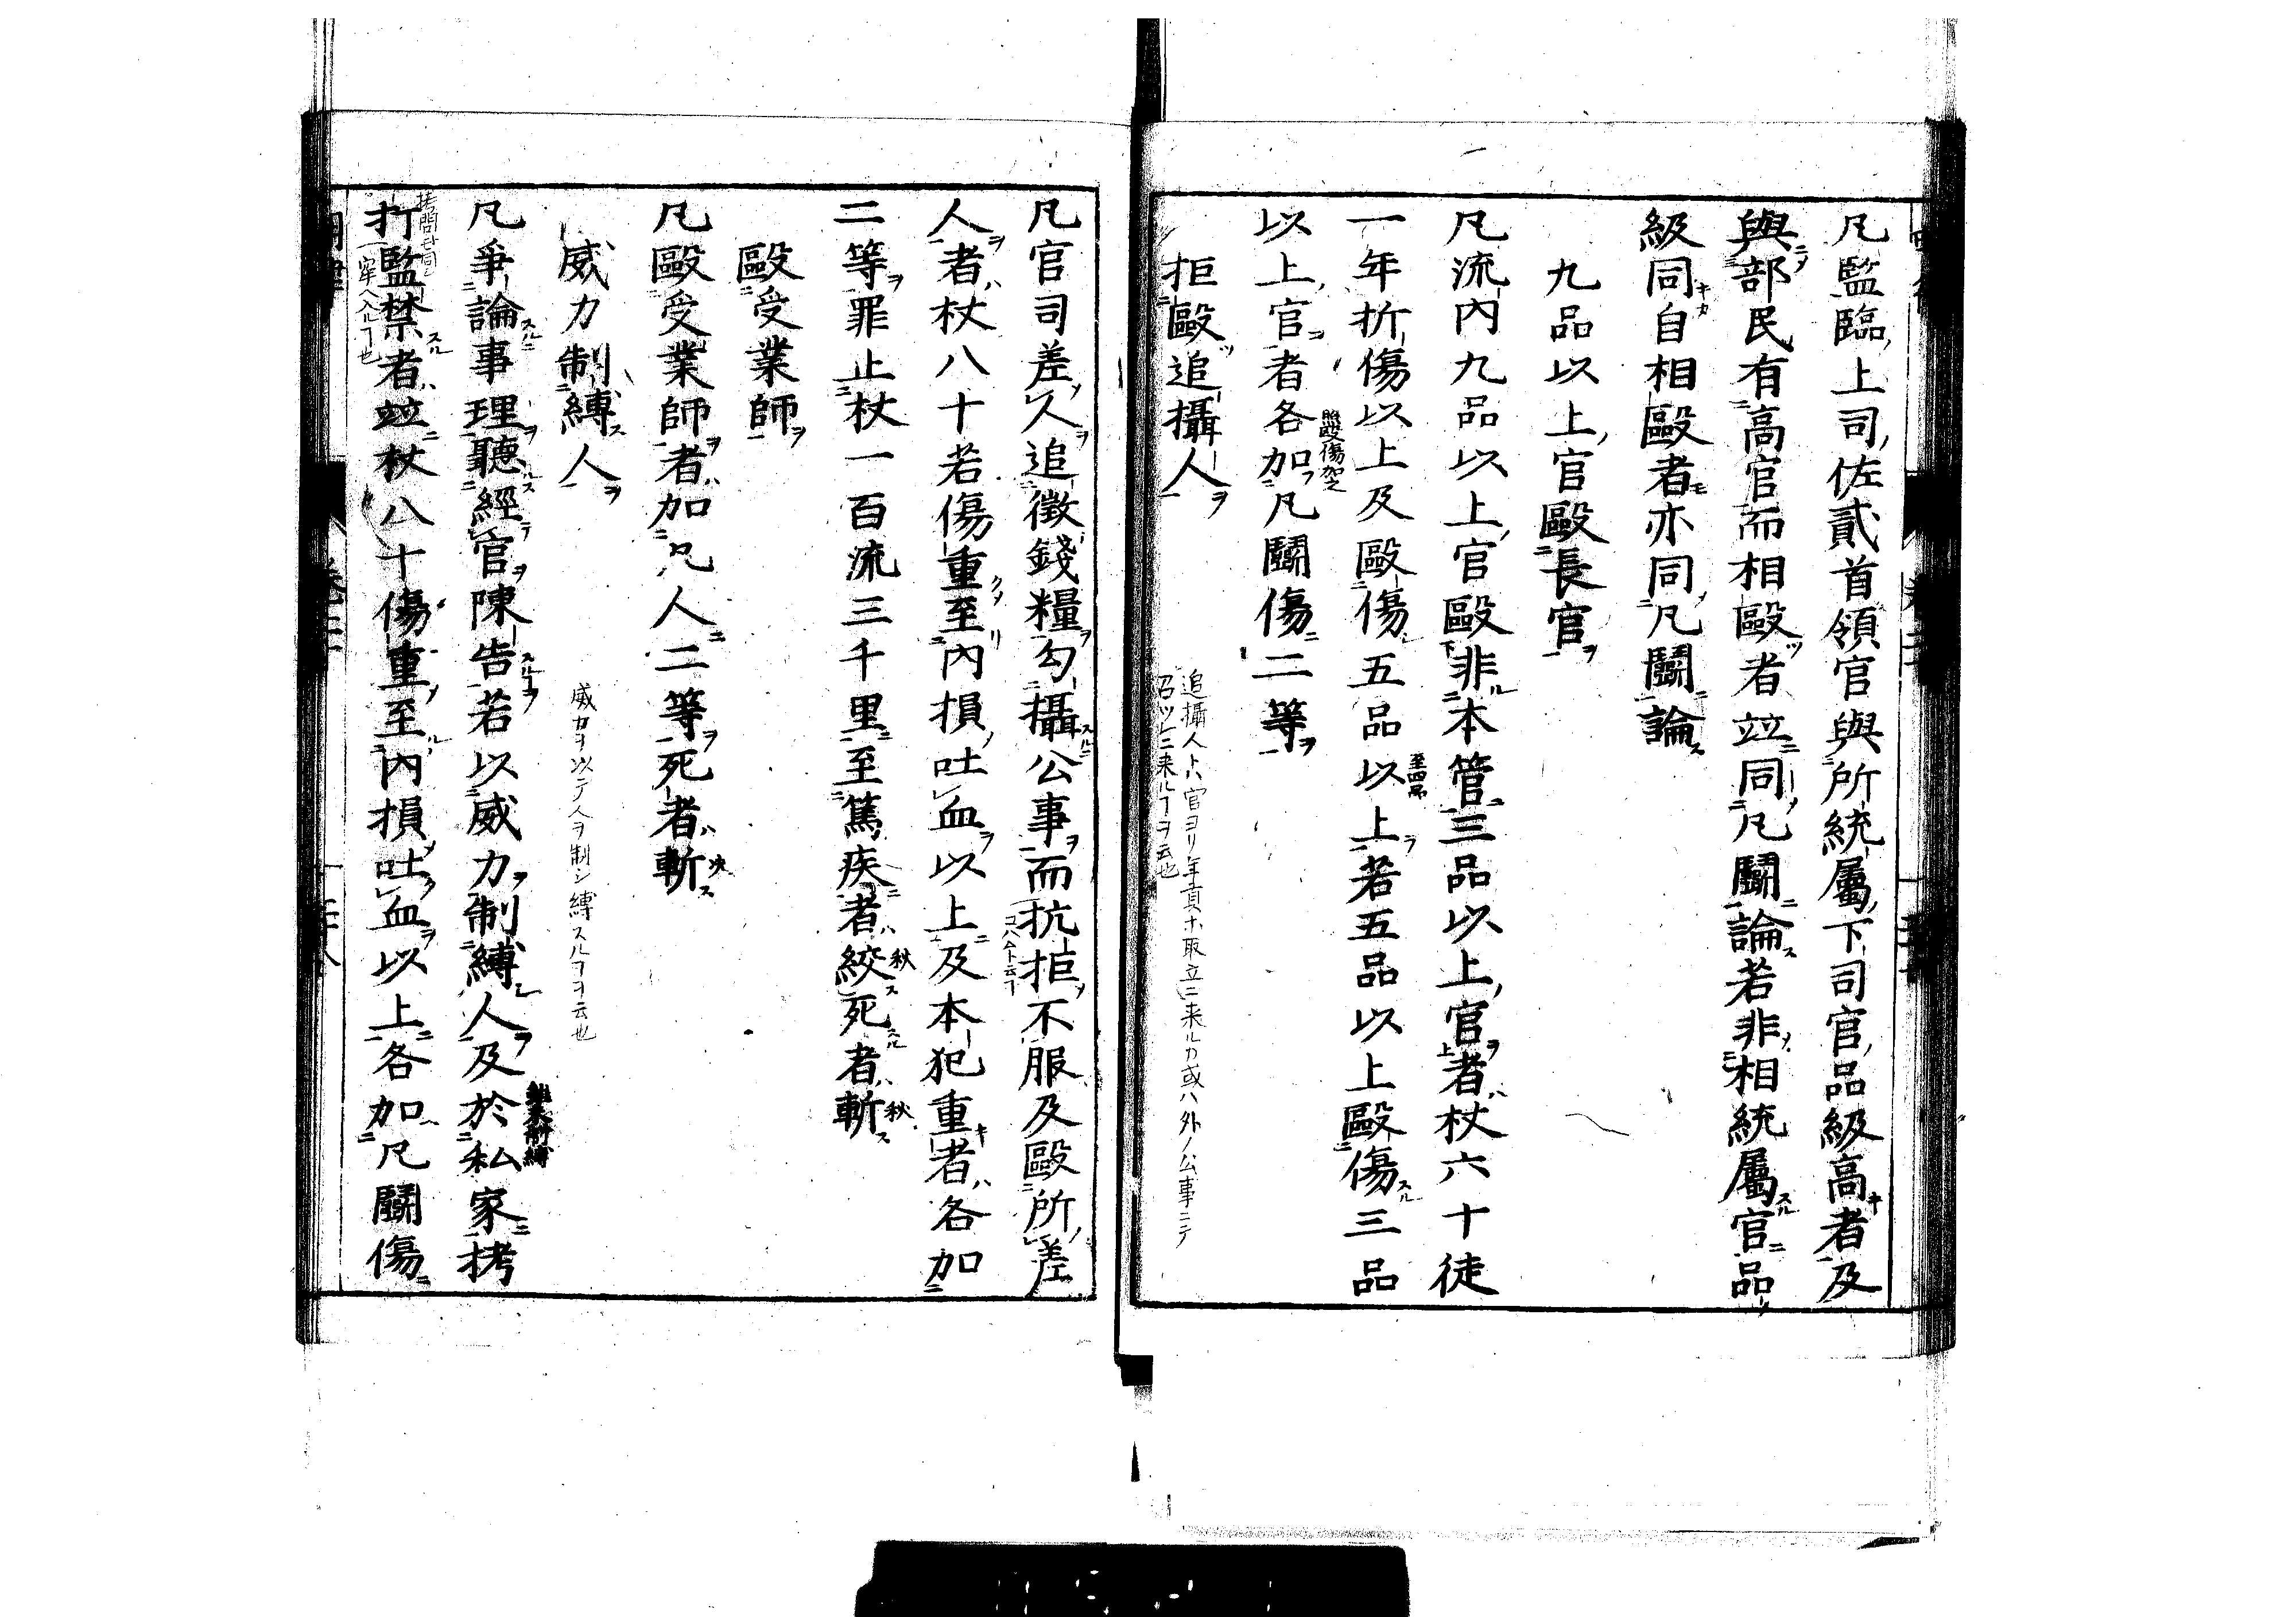 凡監臨上司佐貳首領官與所統屬下司官品級高者及
與部民有高官而相毆者竝同凡鬭論若非相統屬官品
級同自相毆者亦同凡鬭論
九品以上官毆長官
凡流內九品以上官毆非本管三品以上官者杖六十徒
一年折傷以上及毆傷五品以上若五品以上毆傷三品
以上官者各加凡鬭傷二等
拒毆追攝人
追攝人トハ官ヨリ年貢ナト取立ニ来ルカ或ハ外ノ公事ニテ
召ツレニ来ルヿヲ云也
凡官司差人追徵錢糧勾攝公事而抗拒不服及毆所差
人者杖八十若傷重至內損吐血以上及本犯重者各加
二等罪止杖一百流三千里至篤疾者絞死者斬
毆受業師
凡毆受業師者加凡人二等死者斬
威力制縛人
威力ヲ以テ人ヲ制シ縛スルヿヲ云也
凡爭論事理聽經官陳告若以威力制縛人及於私家拷
打監禁者竝杖八十傷重至內損吐血以上各加凡鬭傷
牢ヘ入ルヿ也